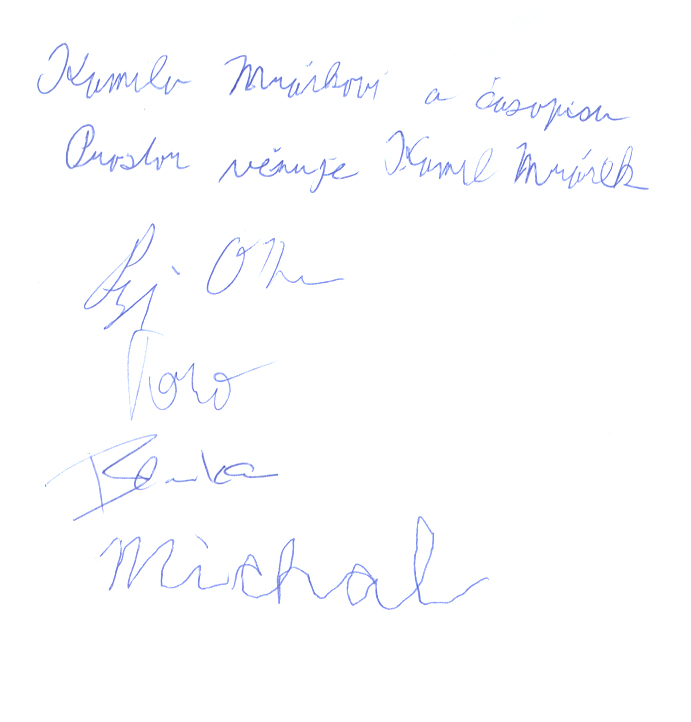 Kamilu Mrázkovi a časopisu
Prostor věnuje Kamil Mrázek
Toro
Lenka
Michal